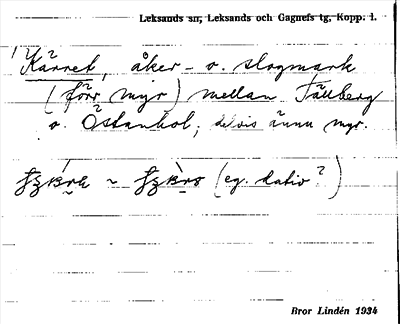 Leksands sn, Leksands och Gagnefs tg, Kopp. l.
1) Kärret, åker- o. slogmark
(förr myr) mellan Tällberg
o. Östanhol, delvis ännu myr.
(eg. dativ?)
Bror Lindén 1934